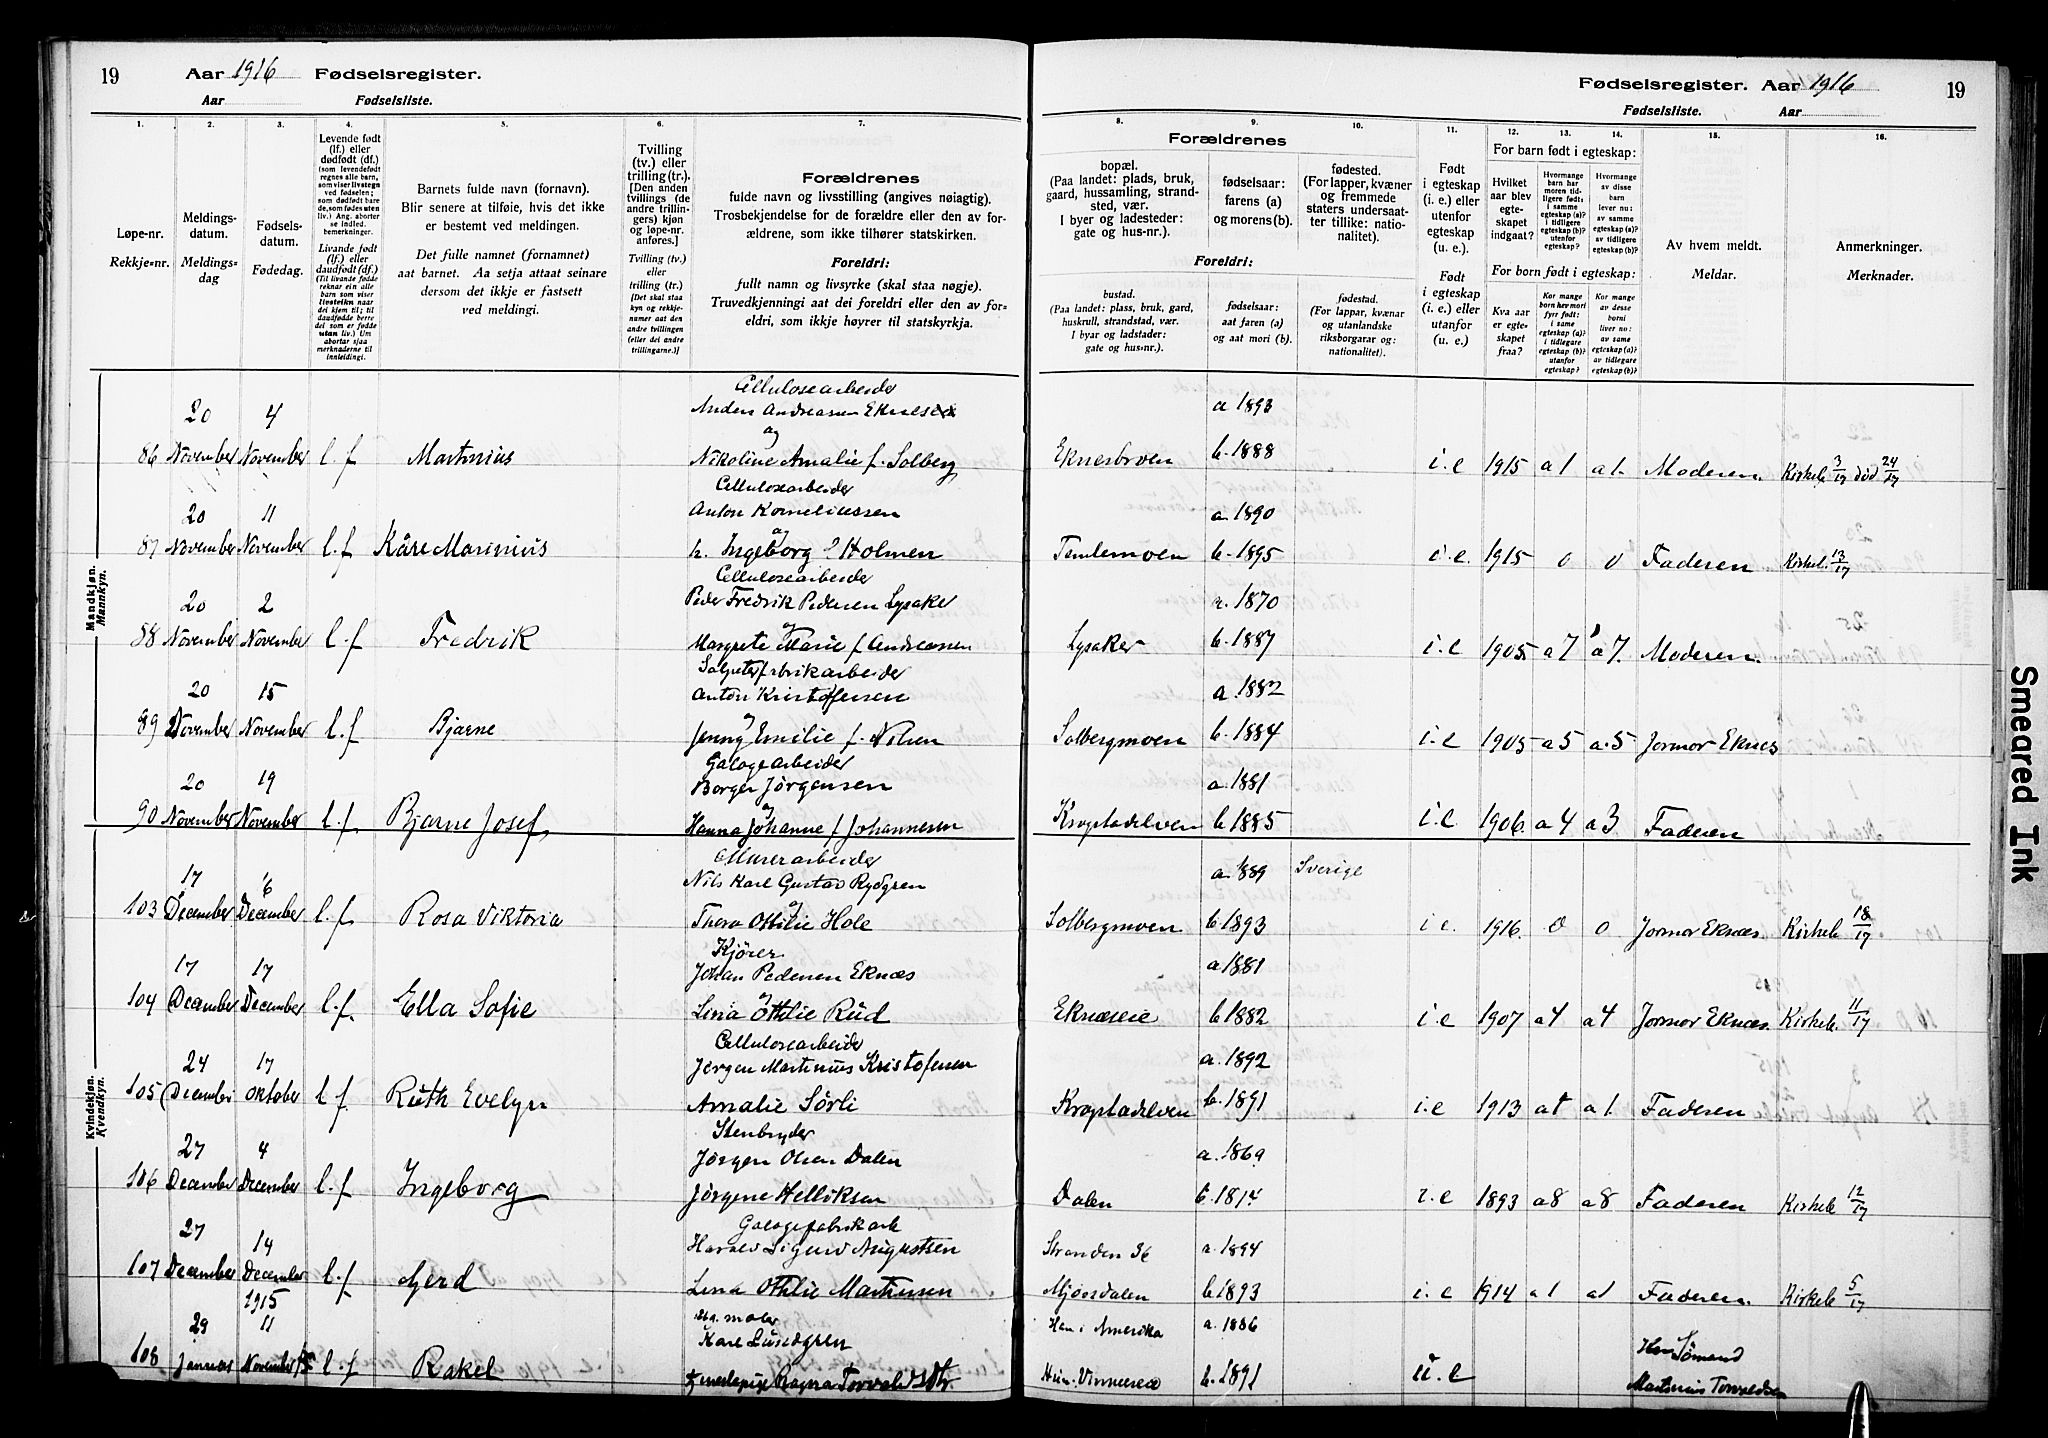 19 Aar 1916 Fødselsregister.
Aar Fødselsliste.
Fødselsregister. Aar 1916 19
Fødselsliste. Aar
1. 2. 3. 4. 5. 6. 7. 8. 9. 10. 11. 12. 13. 14. 15. 16.
Løpe-nr.
Rekkje-nr.
Meldings-
datum.
Meldings-
dag
Fødsels-
datum.
Fødedag.
Levende født
(lf.) eller
dødfødt (df.)
(som levendefødt
regnes alle barn,
som viser livstegn
ved fødselen;
som dødfødt bare
de, som fødes uten
liv.) Ang. aborter
se indled.
bemerkninger.
Livande født
(lf.) eller
daudfødt (df.)
(Til livande fødde
reknar ein alle
barn som viser
livsteikn naar
dei kjem til; til
daudfødde berre
dei som er fødde
utan liv.) Um
abortar sjaa
merknaderne til
innleidingi.
Barnets fulde navn (fornavn).
Blir senere at tilføie, hvis det ikke
er bestemt ved meldingen.
Det fulle namnet (fornamnet)
aat barnet. Aa setja attaat seinare
dersom det ikkje er fastsett
ved meldingi.
Tvilling
(tv.) eller
trilling (tr.).
[Den anden
tvillings (de
andre trillin-
gers) kjøn
og løpe-nr.
anføres.]
Tvilling (tv.)
eller
trilling (tr.)
[Det skal staa
kyn og rekkje-
numer aat den
andre tvillingen
(eller dei andre
trillingarne.)]
Forældrenes
fulde navn og livsstilling (angives nøiagtig).
Trosbekjendelse for de forældre eller den av for-
ældrene, som ikke tilhører statskirken.
Foreldri:
fullt namn og livsyrke (skal staa nøgje).
Truvedkjenningi aat dei foreldri eller den av for-
eldri, som ikkje høyrer til statskyrkja.
Forældrenes
bopæl.
(Paa landet: plads, bruk,
gaard, hussamling, strand-
sted, vær.
I byer og ladesteder:
gate og hus-nr.).
fødselsaar:
farens (a)
og morens (b).
fødested.
(For lapper, kvæner
og fremmede
staters undersaat-
ter tillike: natio-
nalitet).
Foreldri:
bustad.
(Paa landet: plass, bruk, gard,
huskrull, strandstad, vær.
I byar og ladstader:
gate og hus-nr.).
fødselsaar:
aat faren (a)
og aat mori (b).
fødestad.
(For lappar, kvænar
og utanlandske
riksborgarar og:
nationalitet).
Født
i egteskap
(i. e.) eller
utenfor
egteskap
(u. e.).
Født
i egteskap
(i. e.) eller
utanfor
(u. e.).
For barn født i egteskap:
Hvilket
aar blev
egte-
skapet
indgaat?
Hvormange
barn har
moren tid-
ligere født:
i samme
egteskap (a)?
i tidligere
egteskap (b)?
utenfor
egteskap?
Hvormange
av disse
barn
lever nu:
av samme
egteskap (a)?
av tidligere
egteskap (b)?
For born født i egteskap:
Kva aar
er egte-
skapet
fraa?
Kor mange
born hev mori
fyrr født:
i same
egteskap (a)?
i tidlegare
egteskap (b)?
utanfor
egteskap?
Kor mange
av desse
borni
liver no:
av same
egteskap (a)?
av tidlegare
egteskap (b)?
Av hvem meldt.
Meldar.
Anmerkninger.
Merknader.
Mandkjøn.
Mannkyn.
Cellulosearbeider
20 4 Anders Andreassen Eknes a 1893
og
86 November November l.f Martinius Nikoline Amalie f. Solberg Eknesbroen b. 1888 i.e 1915 a 1 a 1. Moderen. Kirkeb. 3/17 død 24/17
Cellulosearbeider
20 11 Anton Korneliussen a. 1890
og
87 November November l.f Kåre Marinius h. Ingeborg Holmen b. 1895 i.e. 1915 0 0 Faderen Kirkeb. 13/17
Cellulosearbeider
20 2 Peder Fredrik Pedersen Lysaker a. 1870
og
88 November November l.f Fredrik Margrete Marie f Andreassen Lysaker b. 1887 i.e 1905 a 7 a 7. Moderen.
Salpeterfabrikarbeider
20 15 Anton Kristofersen a. 1882
og
89 November November l.f Bjarne Jenny Emilie f. Nilsen Solbergmoen b. 1884 i.e 1905 a 5 a. 5 Jormor Eknes
Galogearbeider
20 19 Borger Jørgensen a. 1881
og
90 November November l.f. Bjarne Josef, Hanna Johanne f Johannesen Krogstadelven b 1885 i.e 1906. a 4 a 3 Faderen
Kvindekjøn.
Kvendkyn.
Murerarbeider
17 6 Nils Karl Gustav Rydgren a. 1889 Sverige
og
103 December December l.f. Rosa Viktoria Thora Ottilie Hole Solbergmoen b. 1893 i e. 1916. 0 0 Jormor Eknæs. Kirkeb 18/17
Kjører
17 17 Johan Pedersen Eknæs a 1881
og
104 December December l.f. Ella Sofie Lina Ottilie Rud Eknæseie b 1882 i.e 1907 a 4 a 4 Jormor Eknæs. Kirkeb. 11/17
Celluloseearbeide
24 17 Jørgen Martinius Kristofersen a. 1892
105 Decembr Oktober l f. Ruth Evelyn Amalie Sørli Krogstadelven b. 1891 i.e 1913 a 1 a 1. Faderen
Stenbryder
27 4 Jørgen Olsen Dalen a. 1869
106 December December l.f Ingeborg Jørgene Helliksen Dalen i.e 1893 a 8 a 8 Faderen Kirkeb 12/17
Galogefabrikarb
27 14 Harald Sigurd Augustsen Stranden 36 a. 1894
107 December December l.f Gerd Lina Ottilie Martinsen Mjøndalen b 1893 i.e 1914 a 1 a 1 Faderen. Kirkeb 5/17
1915
29 11 maler Karl Lundgren Han i Amerika a. 1886
108 Januar November l.f Rakel Ragna Torvaldsdtr. b. 1891 u.e
Sømand
Martinius Torvaldsen
Smeared Ink